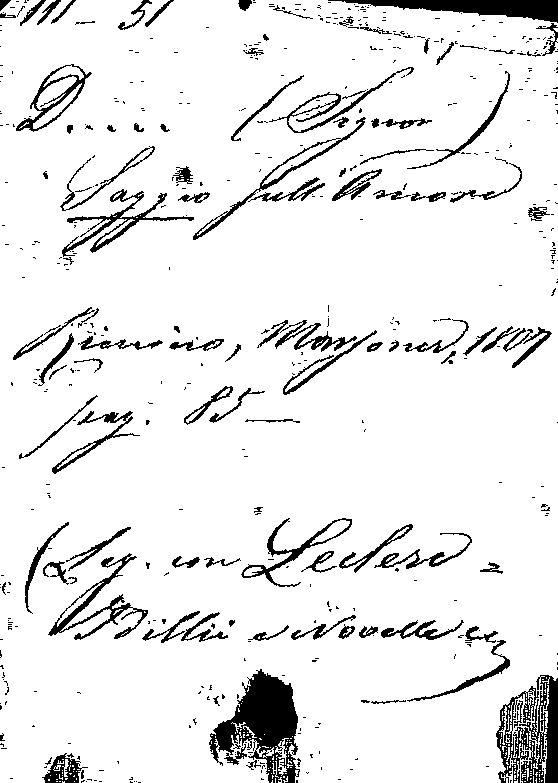 III - 51
D..... (Signor)
Saggio sull'Amore
Rimino, Marsoner, 1807
pag. 85 —
(Leg. con Leclerc =
Idillii e Novelle